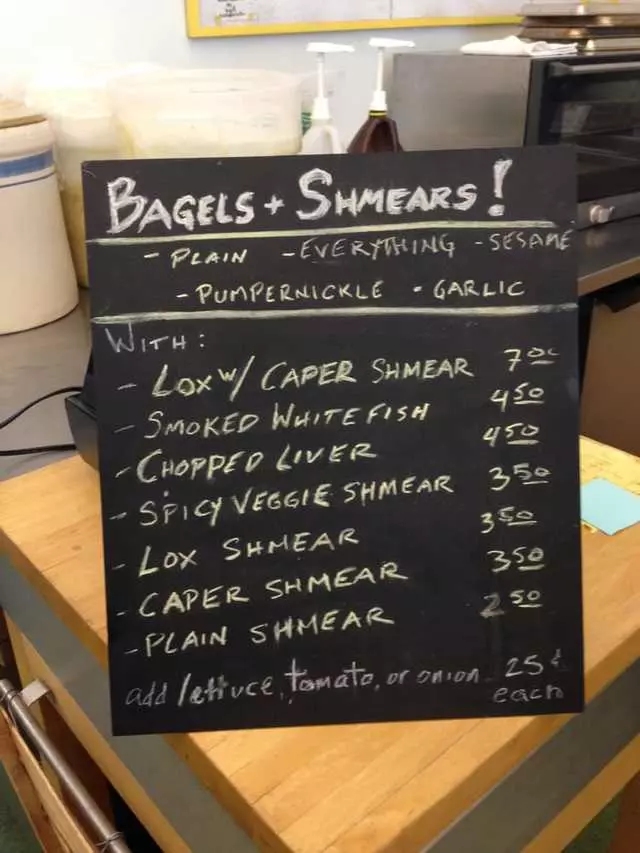 BAGELS + SHMEARS!
- PLAIN - EVERYTHING - SESAME
- PUMPERNICKLE • GARLIC
WITH:
- LOX W/ CAPER SHMEAR 7 00
- SMOKED WHITEFISH 4 50
- CHOPPED LIVER 4 50
- SPICY VEGGIE SHMEAR 3 50
- LOX SHMEAR 3 50
- CAPER SHMEAR 3 50
- PLAIN SHMEAR 2 50
add lettuce, tomato, or onion 25¢ each